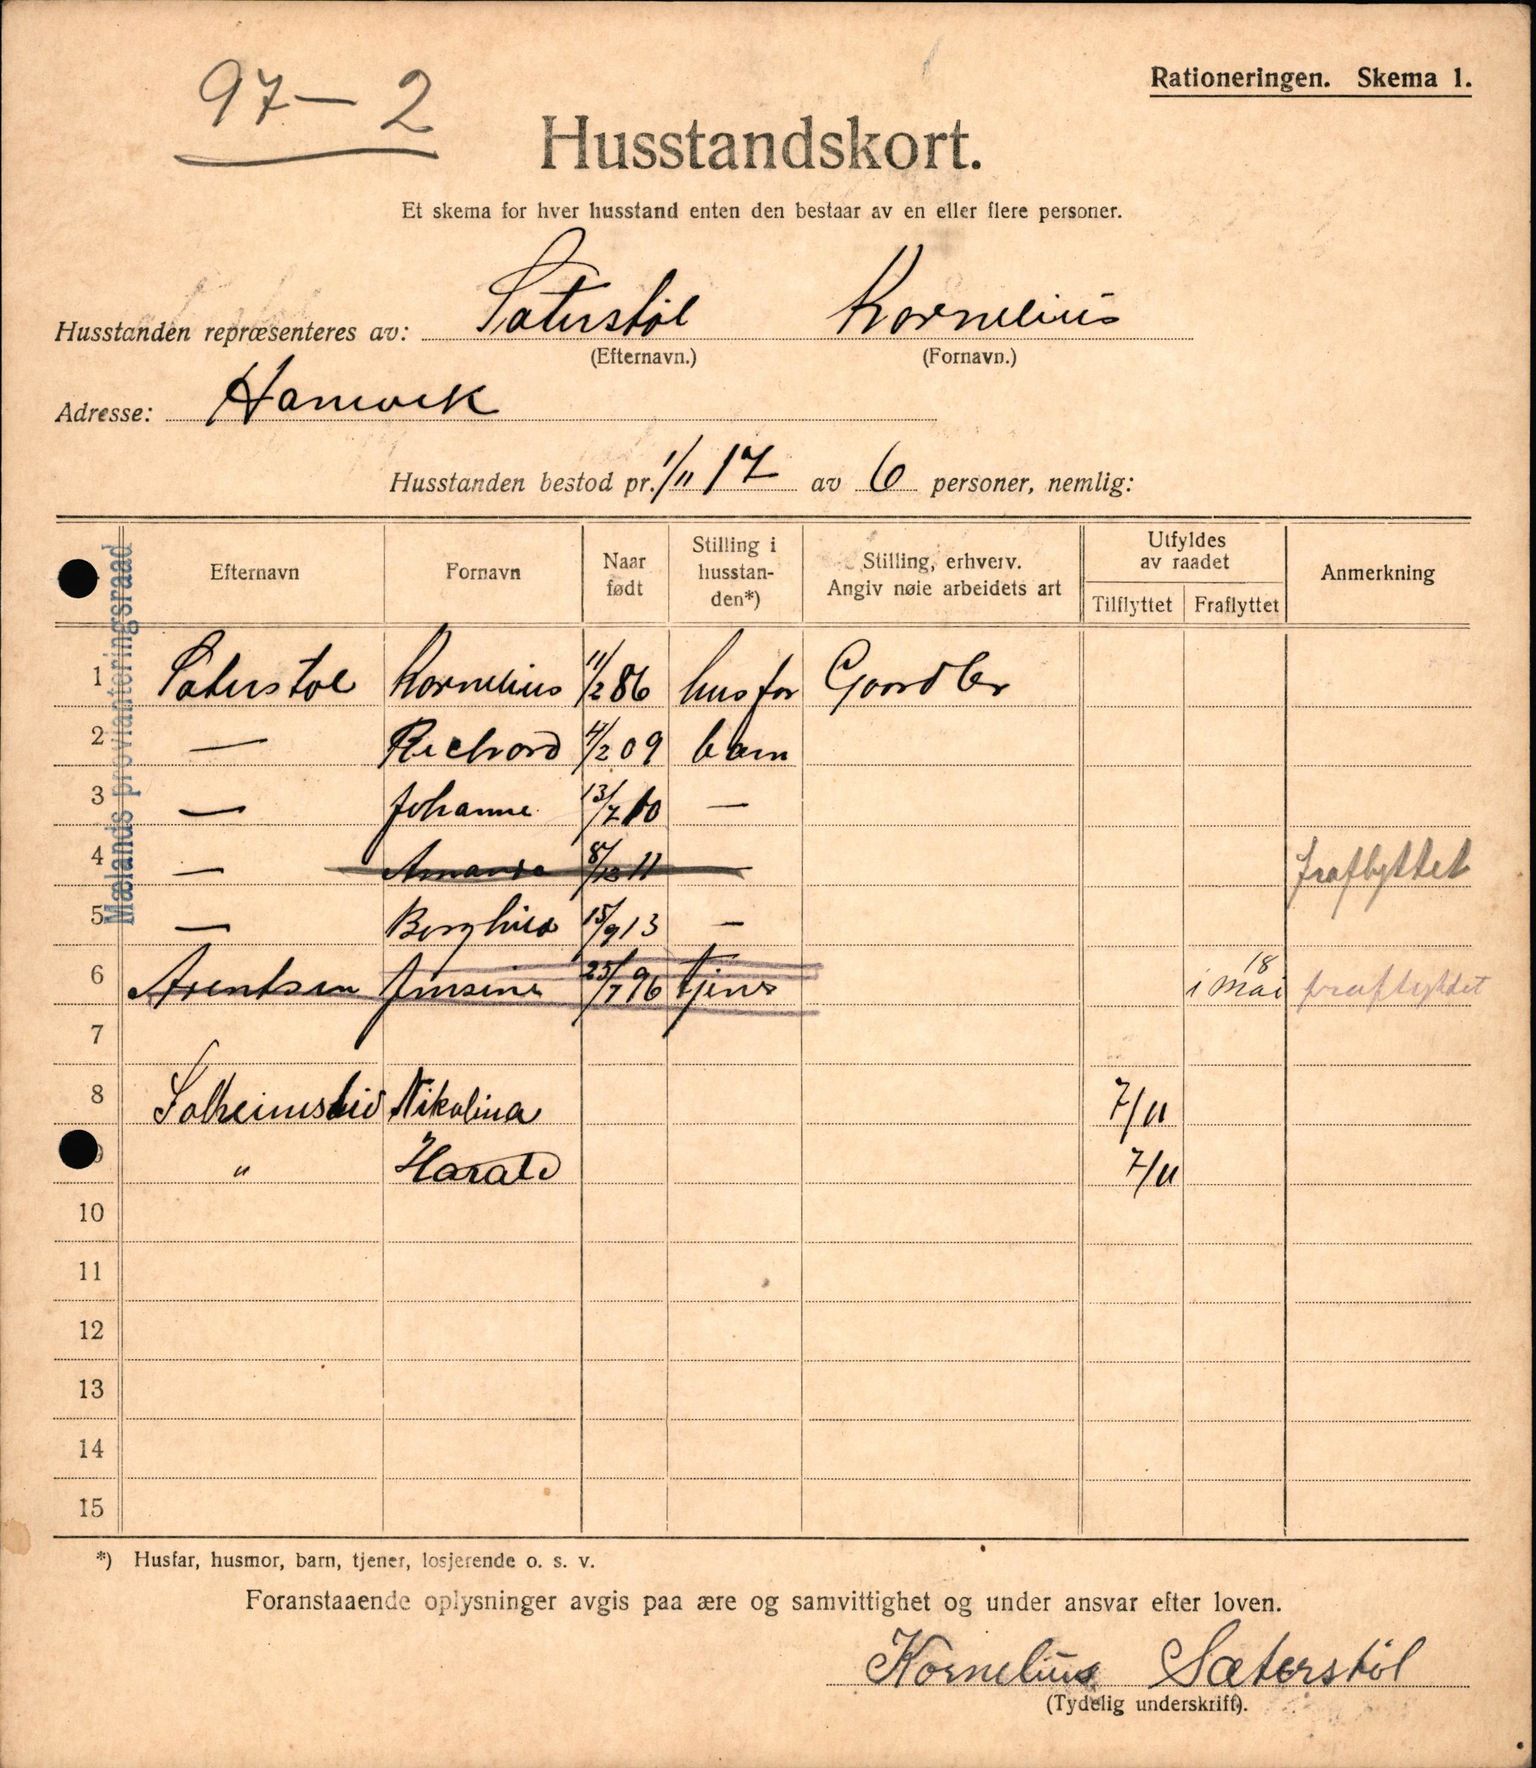 97 – 2
Rationeringen. Skema 1.
Husstandskort.
Et skema for hver husstand enten den bestaar av en eller flere personer.
Husstanden repræsenteres av: Sæterstöl Kornelius
(Efternavn.) (Fornavn.)
Adresse:
Husstanden bestod pr. 1/11 17 av 6 personer, nemlig:
Mælands provianteringsraad
Efternavn Fornavn Naar født Stilling i husstanden*) Stilling, erhverv. Angiv nøie arbeidets art Utfyldes av raadet Tilflyttet Fraflyttet Anmerkning
1 Sæterstøl Kornelius 11/2 86 husfar Gaardbr
2 — Richard 4/2 09 barn
3 — Johanne 13/7 10 —
4 — Amanda 8/12 11 — fraflyttet
5 — Borghild 15/9 13 —
6 Arentsen Jensine 25/7 96 tjener i Mai 18 fraflyttet
7
8 Solheimslid Nikolina 7/11
9 " Harald 7/11
10
11
12
13
14
15
*) Husfar, husmor, barn, tjener, losjerende o. s. v.
Foranstaaende oplysninger avgis paa ære og samvittighet og under ansvar efter loven.
Kornelius Sæterstöl
(Tydelig underskrift).